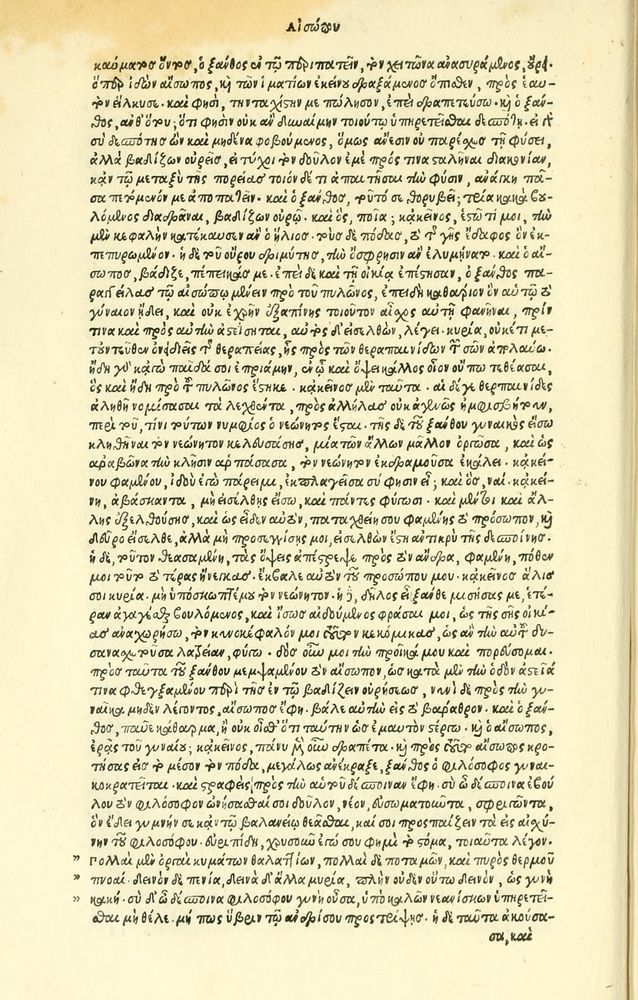 Αἰσώπου
καύματος ὄντος, ὁ ξάνθος ἐν τῷ περιπατεῖν, τὸν χιτῶνα ἀνασυράμενος, οὔρει.
ὅπερ ἰδὼν αἴσωπος, καὶ τῶν ἱματίων ἐκείνου δραξάμενος ὄπιθεν, πρὸς ἑαυ-
τὸν εἵλκυσε· καὶ φησὶ, τὴν ταχίστην με πώλησον, ἐπεὶ δραπετεύσω· καὶ ὁ ξάν-
θος, ἀνθ' ὅτου; ὅτι φησὶν οὐκ ἂν δυναίμην τοιούτῳ ὑπηρετεῖσθαι δεσπότῃ· εἰ γὰρ
σὺ δεσπότης ὢν καὶ μηδένα φοβούμενος, ὅμως ἄνεσιν οὐ παρέχεις τῇ φύσει,
ἀλλὰ βαδίζων οὐρεῖς, εἰ τύχοι τὸν δοῦλον ἐμὲ πρός τινα σταλῆναι διακονίαν,
κἀν τῷ μεταξὺ τῆς πορείας τοιόνδέ τι ἀπαιτῆσαι τὴν φύσιν, ἀνάγκη πᾶ-
σα πετόμενόν με ἀποπατεῖν· καὶ ὁ ξάνθος, τοῦτό σε θορυβεῖ; τρία κακὰ βου-
λόμενος διαδρᾶναι, βαδίζων οὐρῶ· καὶ ὃς, ποῖα; κἀκεῖνος, ἑστῶτί μοι, τὴν
μὲν κεφαλὴν κατέκαυσεν ἂν ὁ ἥλιος· τοὺς δὲ πόδας, τὸ τῆς γῆς ἔδαφος ὂν ἐκ-
πεπυρωμένον· ἡ δὲ τοῦ οὔρου δριμύτης, τὴν ὄσφρησιν ἂν ἐλυμήνατο· καὶ ὁ αἴ-
σωπος, βάδιζε, πέπεικάς με· ἐπεὶ δὲ καὶ τῇ οἰκίᾳ ἐπέστησαν, ὁ ξάνθος πα-
ραγγείλας τῷ αἰσώπῳ μένειν πρὸ τοῦ πυλῶνος, ἐπειδὴ καθάριον ὂν αὐτῷ τὸ
γύναιον ᾔδει, καὶ οὐκ ἐχρῆν ἐξαπίνης τοιοῦτον αἶσχος αὐτῇ φανῆναι, πρίν
τινα καὶ πρὸς αὐτὴν ἀστείσηται, αὐτὸς δ' εἰσελθὼν, λέγει· κυρία, οὐκέτι με-
τοντεῦθεν ὀνειδιεῖς τῆς θεραπείας, ἧς πρὸς τῶν θεραπαινίδων τῶν σῶν ἀπολαύω.
ἤδη γὰρ κἀγὼ παῖδά σοι ἐπριάμην, ἐν ᾧ καὶ ὄψει κάλλος οἷον οὔπω τεθέασαι,
ὃς καὶ ἤδη πρὸ τοῦ πυλῶνος ἕστηκε· κἀκεῖνος μὲν ταῦτα· αἱ δέ γε θεραπαινίδες
ἀληθῆ νομίσασαι τὰ λεχθέντα, πρὸς ἀλλήλας οὐκ ἀγεννῶς ἠμφισβήτουν,
περὶ τοῦ, τίνι τούτων νυμφίος ὁ νεώνητος ἔσται· τῆς δὲ τοῦ ξάνθου γυναικὸς εἴσω
κληθῆναι τὸν νεώνητον κελευσάσης, μία τῶν ἄλλων μᾶλλον ὀργῶσα, καὶ ὡς
ἀραβῶνα τὴν κλῆσιν ἁρπάσασα, τὸν νεώνητον ἐκδραμοῦσα ἐκάλει· κἀκεί-
νου φαμένου, ἰδοὺ ἐγὼ πάρειμι, ἐκπλαγεῖσα σὺ φησὶν εἶ; καὶ ὃς, ναί· κἀκεί-
νη, ἀβάσκαντα, μὴ εἰσέλθῃς εἴσω, καὶ πάντες φύγωσι· καὶ μέντοι καὶ ἄλ-
λης ἐξελθούσης, καὶ ὡς εἶδεν αὐτὸν, παταχθείη σου φαμένης τὸ πρόσωπον, καὶ
δεῦρο εἴσελθε, ἀλλὰ μή προσεγγίσῃς μοι, εἰσελθὼν ἔστη ἀντικρὺ τῆς δεσποίνης·
ἡ δὲ, τοῦτον θεασαμένη, τὰς ὄψεις ἀπέστρεψε πρὸς τὸν ἄνδρα, φαμένη, πόθεν
μοι τοῦτο τὸ τέρας ἤνεγκας· ἔκβαλε αὐτὸν τοῦ προσώπου μου· κἀκεῖνος ἅλις
σοι κυρία· μὴ ὑπόσκωπτέ μου τὸν νεώνητον· ἡ δὲ, δῆλος εἶ ξάνθε μισήσας με, ἑτέ-
ραν ἀγαγέσθαι βουλόμενος, καὶ ἴσως αἰδούμενος φράσαι μοι, ὡς τῆς σῆς οἰκί-
ας ἀναχωρήσω, τὸν κυνοκέφαλόν μοι τοῦτον κεκόμικας, ὡς ἂν τὴν αὐτοῦ δυ-
σανασχετοῦσα λατρείαν, φύγω· δὸς οὖν μοι τὴν προῖκά μου καὶ πορεύσομαι·
πρὸς ταῦτα τοῦ ξάνθου μεμψαμένου τὸν αἴσωπον, ὡς κατὰ μὲν τὴν ὁδὸν ἀστεῖά
τινα φθεγξαμένου περὶ τῆς ἐν τῷ βαδίζειν οὐρήσεως, νυνὶ δὲ πρὸς τὴν γυ-
ναῖκα μηδὲν λέγοντος, αἴσωπος ἔφη· βάλε αὐτὴν εἰς τὸ βάραθρον· καὶ ὁ ξάν-
θος, παῦε κάθαρμα, ἢ οὐκ οἶσθ' ὅτι ταύτην ὡς ἐμαυτὸν στέργω· καὶ ὁ αἴσωπος,
ἐρᾷς τοῦ γυναίου; κἀκεῖνος, πάνυ μὲν οὖν δραπέτα· καὶ πρὸς τοῦτο αἴσωπος κρο-
τήσας εἰς τὸ μέσον τὸν πόδα, μεγάλως ἀνέκραξε, ξάνθος ὁ φιλόσοφος γυναι-
κοκρατεῖται· καὶ στραφεὶς πρὸς τὴν αὐτοῦ δέσποιναν ἔφη· σὺ ὦ δέσποινα ἐβού
λου τὸν φιλόσοφον ὠνήσασθαί σοι δοῦλον, νέον, εὐσωματοῦντα, σφριγῶντα,
ὃν ἔδει γυμνήν σε κἀν τῷ βαλανείῳ θεᾶσθαι, καί σοι προσπαίζειν τὰ εἰς αἰσχύ-
νην τοῦ φιλοσόφου· εὐριπίδη, χρυσοῦν ἐγώ σου φημὶ τὸ στόμα, τοιαῦτα λέγον·
” πολλαὶ μὲν ὀργαὶ κυμάτων θαλαττίων, πολλαὶ δὲ ποταμῶν, καὶ πυρὸς θερμοῦ
” πνοαί· δεινὸν δὲ πενία, δεινὰ δ' ἄλλα μυρία, πλὴν οὐδὲν οὕτω δεινὸν, ὡς γυνὴ
” κακή· σὺ δ' ὦ δέσποινα φιλοσόφου γυνὴ οὖσα, ὑπὸ καλῶν νεανίσκων ὑπηρετεῖ-
σθαι μὴ θέλε· μή πως ὕβριν τῷ ἀνδρί σου προστρίψῃς· ἡ δὲ ταῦτα ἀκούσα-
σα, καὶ